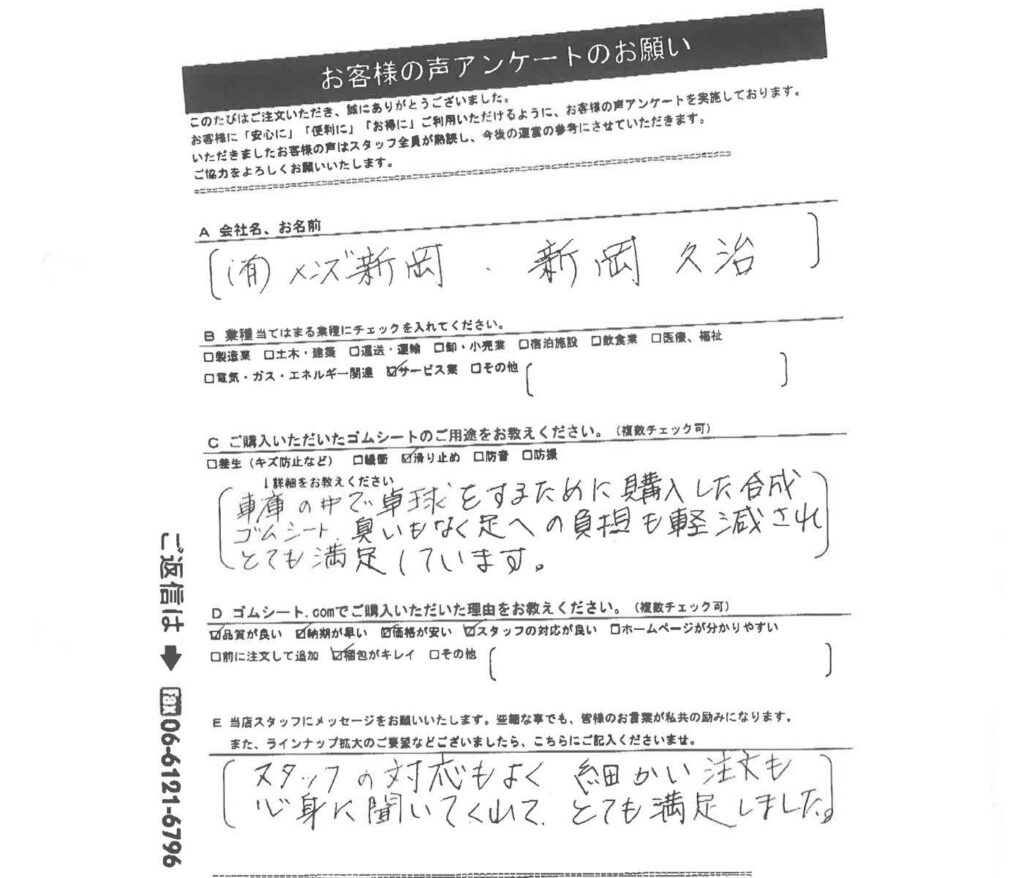 お客様の声アンケートのお願い
このたびはご注文いただき、誠にありがとうございました。
お客様に「安心に」「便利に」「お得に」ご利用いただけるように、お客様の声アンケートを実施しております。
いただきましたお客様の声はスタッフ全員が熟読し、今後の運営の参考にさせていただきます。
ご協力をよろしくお願いいたします。
A 会社名、お名前
(有)メンズ新岡 . 新岡 久治
B 業種当てはまる業種にチェックを入れてください。
□製造業 □土木・建築 □運送・運輸 □卸・小売業 □宿泊施設 □飲食業 □医療、福祉
□電気・ガス・エネルギー関連 ☑サービス業 □その他
C ご購入いただいたゴムシートのご用途をお教えください。(複数チェック可)
□養生(キズ防止など) □緩衝 ☑滑り止め □防音 □防振
↓詳細をお教えください
車庫の中で卓球をするために購入した合成
ゴムシート、臭いもなく足への負担も軽減され
とても満足しています。
D ゴムシート.comでご購入いただいた理由をお教えください。(複数チェック可)
☑品質が良い ☑納期が早い ☑価格が安い ☑スタッフの対応が良い □ホームページが分かりやすい
□前に注文して追加 ☑梱包がキレイ □その他
E 当店スタッフにメッセージをお願いいたします。些細な事でも、皆様のお言葉が私共の励みになります。
また、ラインナップ拡大のご要望などございましたら、こちらにご記入くださいませ。
スタッフの対応もよく 細かい注文も
心身に聞いてくれて、とても満足しました。
ご返信は➡fax06-6121-6796